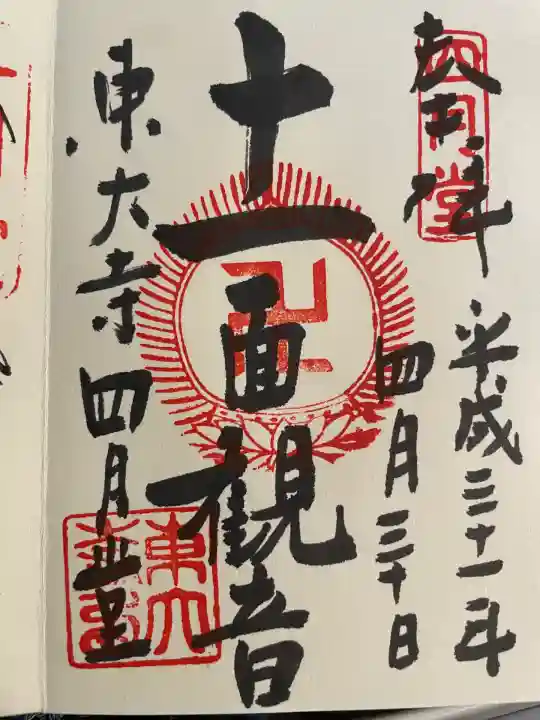 奉拝
四月堂
平成三十一年
四月三十日
十一面観音
東大寺四月堂